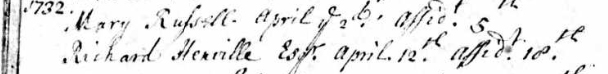 1732.
Mary Russell. April ye 2d. Affid.t 5th
Richard Henville Esqr. April. 12.th Affid.t 18.th